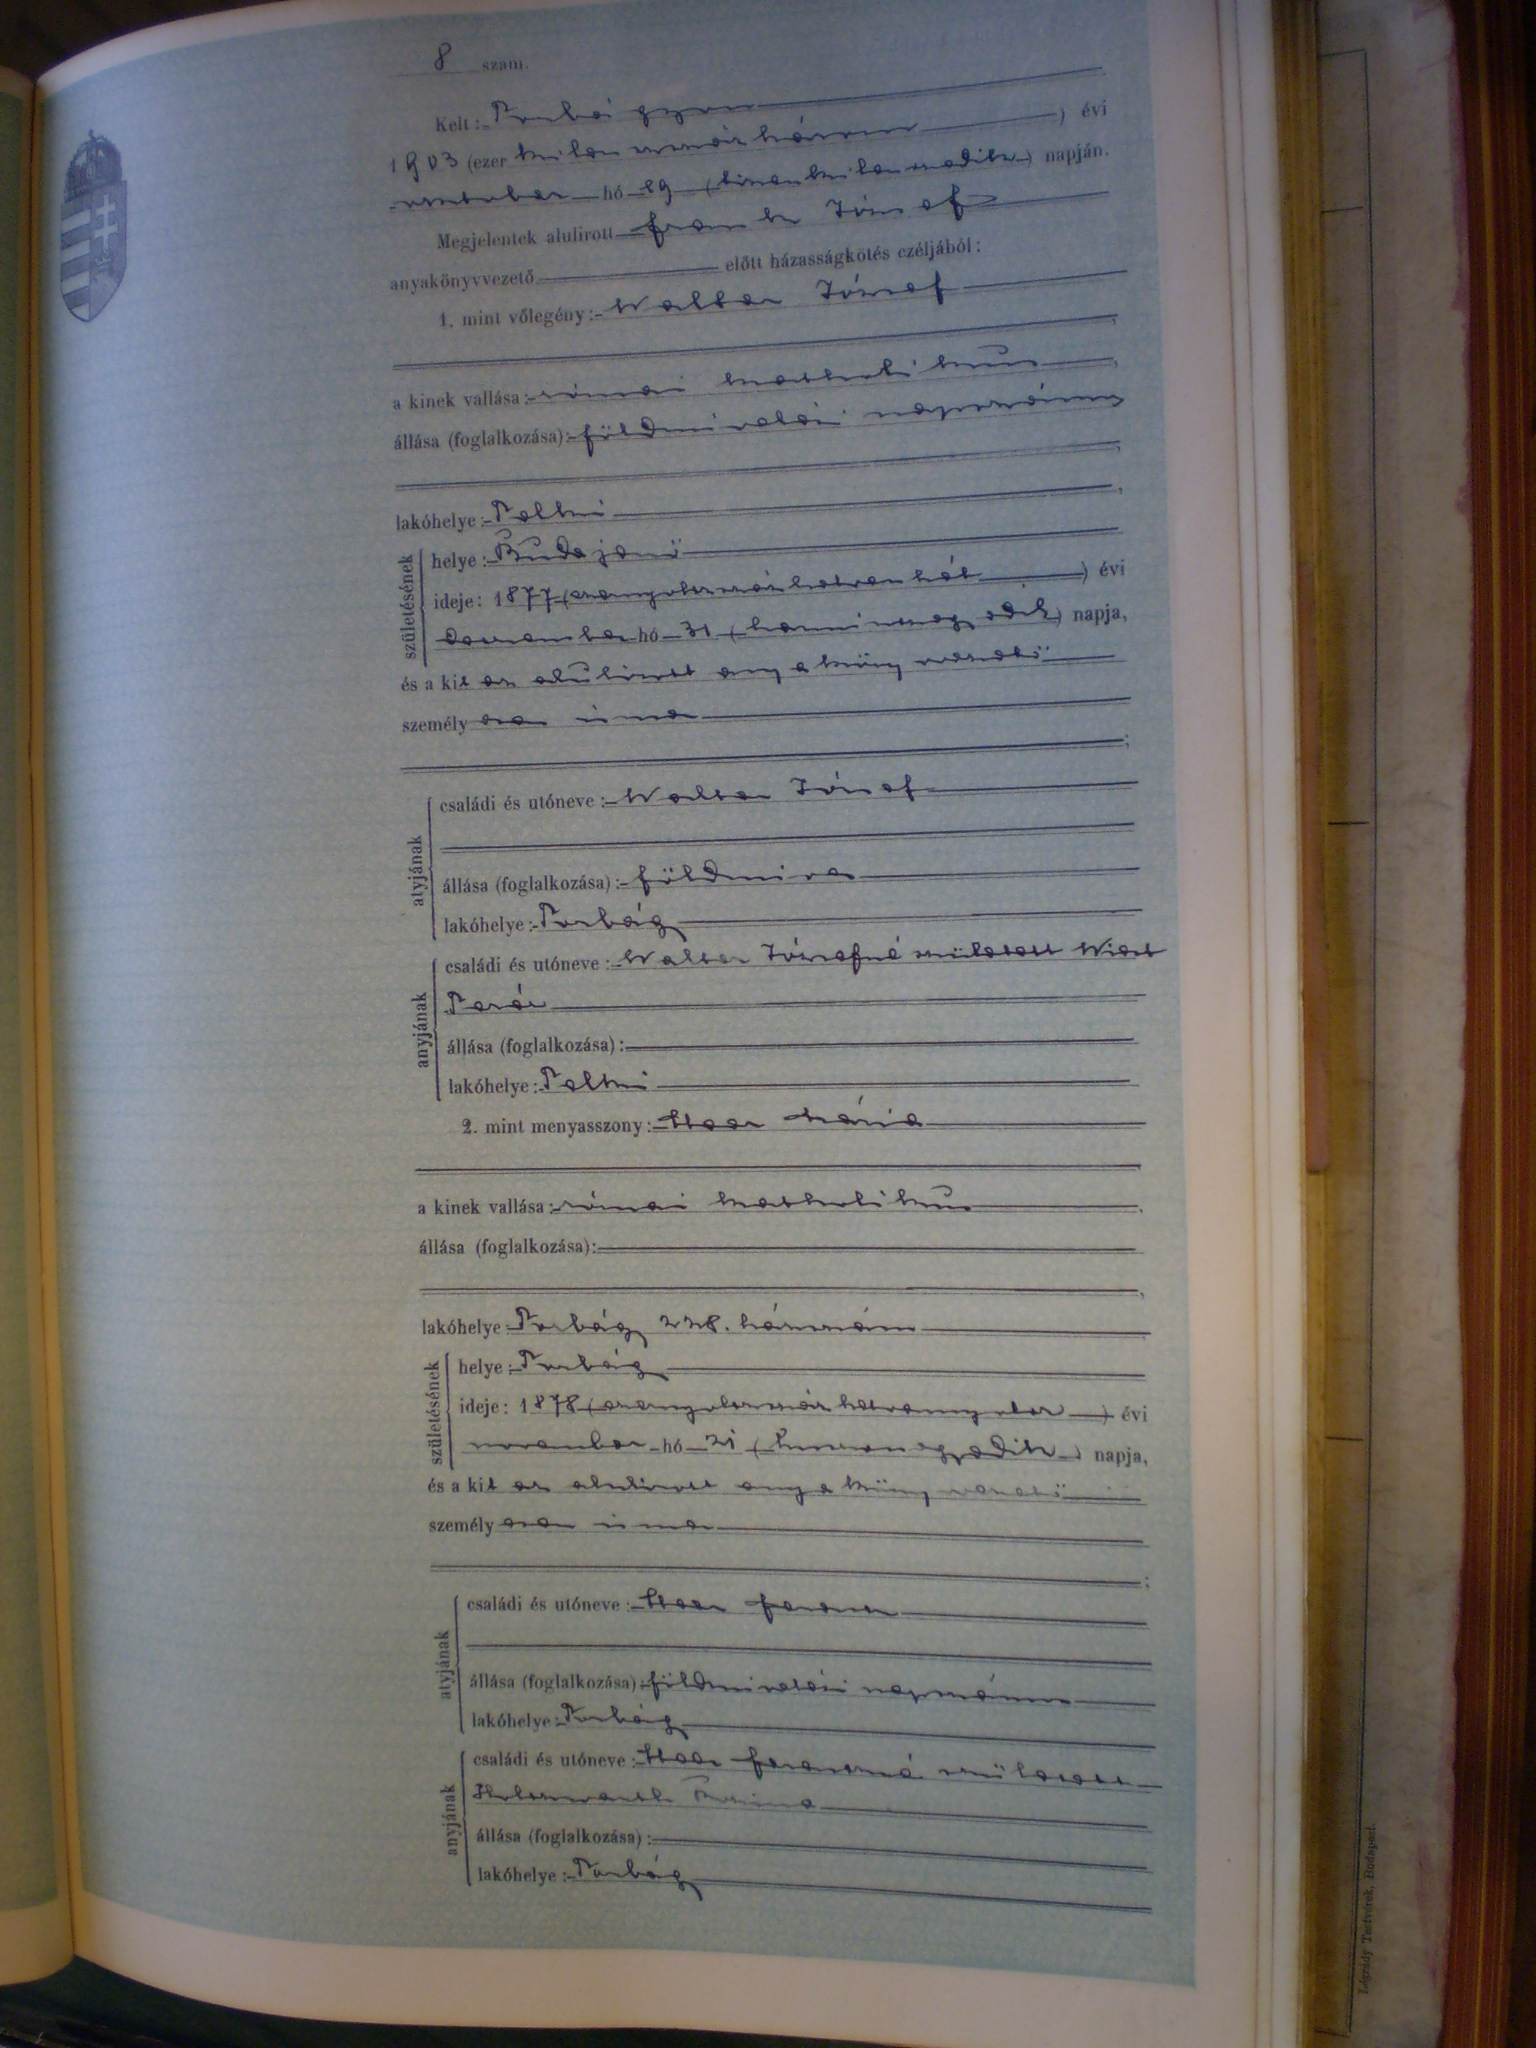 8 szám.
Kelt: Torbágyon
1903 (ezerkilenczszázhárom) évi
hó 19 (tizenkilenczedik) napján.
Megjelentek alulírott Frank József
anyakönyvvezető előtt házasságkötés czéljából:
1. mint vőlegény: Walter József
a kinek vallása: római katholikus,
állása (foglalkozása): földmivelési napszámos,
lakóhelye: Telki,
születésének
helye: Budajenő
ideje: 1877 (ezernyolczszázhetvenhét) évi
deczember hó 31 (harminczegyedik) napja,
és a kit az alulirott anyakönyvvezető
személyesen ismer;
atyjának
családi és utóneve: Walter József
állása (foglalkozása): földmives
lakóhelye: Torbágy
anyjának
családi és utóneve: Walter Józsefné született
Teréz
állása (foglalkozása):
lakóhelye: Telki
2. mint menyasszony: Mária
a kinek vallása: római katholikus,
állása (foglalkozása):
lakóhelye: Torbágy 228. házszám
születésének
helye: Torbágy
ideje: 1878 (ezernyolczszázhetvennyolcz) évi
november hó 21 (huszonegyedik) napja,
és a kit az alulirott anyakönyvvezető
személyesen ismer;
atyjának
családi és utóneve: Ferencz
állása (foglalkozása): földmivelési napszámos
lakóhelye: Torbágy
anyjának
családi és utóneve: Ferenczné született
állása (foglalkozása):
lakóhelye: Torbágy
Légrády Testvérek, Budapest.